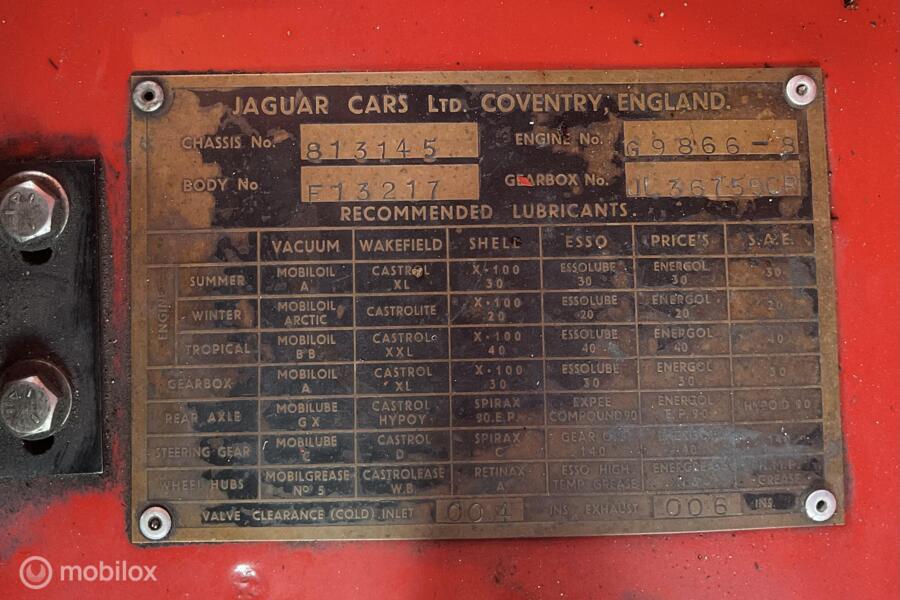 JAGUAR CARS LTD. COVENTRY, ENGLAND.
CHASSIS No. 813145 ENGINE No. G9866-8
BODY No F13217 GEARBOX No.
RECOMMENDED LUBRICANTS.
VACUUM WAKEFIELD SHELL ESSO PRICE'S S.A.E.
ENGINE
SUMMER MOBILOIL A CASTROL XL X-100 30 ESSOLUBE 30 ENERGOL 30 30
WINTER MOBILOIL ARCTIC CASTROLITE X-100 20 ESSOLUBE 20 ENERGOL 20 20
TROPICAL MOBILOIL BB CASTROL XXL X-100 40 ESSOLUBE 40 ENERGOL 40 40
GEARBOX MOBILOIL A CASTROL XL X-100 30 ESSOLUBE 30 ENERGOL 30 30
REAR AXLE MOBILUBE GX CASTROL HYPOY SPIRAX 90.E.P. EXPEE COMPOUND 90 ENERGOL E.P. 90 HYPOID 90
STEERING GEAR MOBILUBE C CASTROL D SPIRAX C GEAR OIL 140 ENERGOL 140
WHEEL HUBS MOBILGREASE No 5 CASTROLEASE W.B. RETINAX A ESSO HIGH TEMP. GREASE ENERGREASE GREASE
VALVE CLEARANCE (COLD) INLET 004 INS. EXHAUST 006 INS.
mobilox